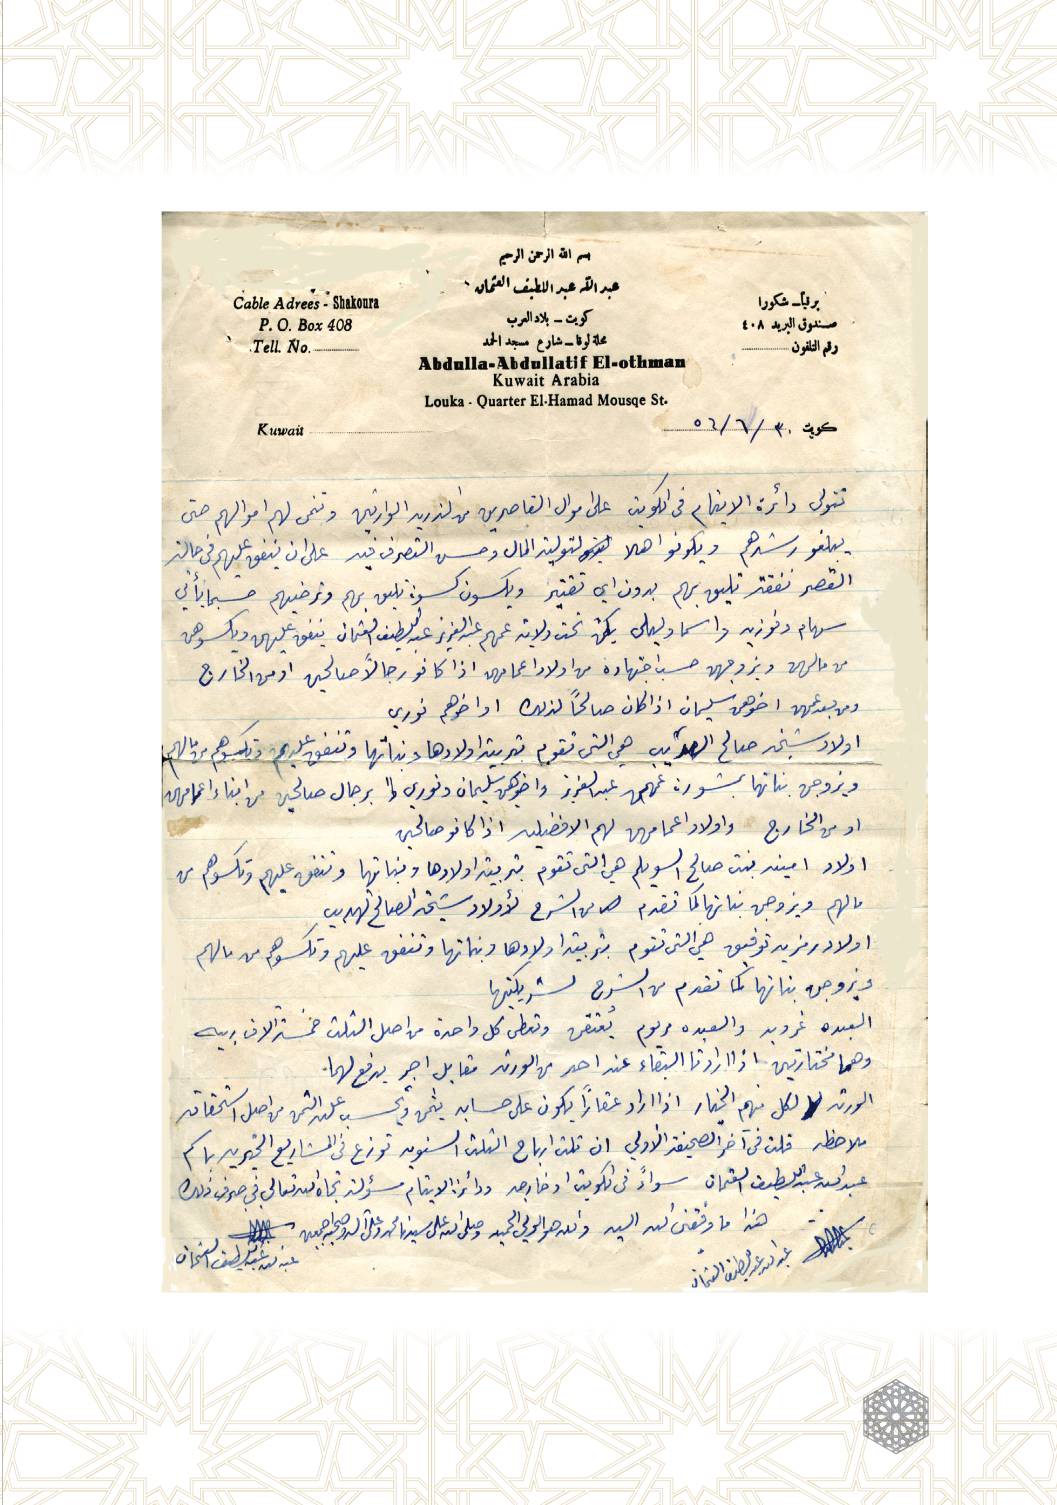 بسم الله الرحمن الرحيم
عبدالله عبداللطيف العثمان
كويت – بلاد العرب
محلة لوقا – شارع مسجد الحمد
Cable Adrees - Shakoura
P. O. Box 408
Tell. No.
برقياً – شكورا
صندوق البريد ٤٠٨
رقم التلفون
Abdulla-Abdullatif El-othman
Kuwait Arabia
Louka - Quarter El-Hamad Mousqe St.
Kuwait
كويت ٣٠/٦/٥٦
تتولى دائرة الايتام في الكويت على اموال القاصرين من الذريه الوارثين وتنمى لهم اموالهم حتى
يبلغو رشدهم ويكونو اهلا لتولية المال وحسن التصرف فيه على ان ينفق عليهم في حالة
القصر نفقة تليق بهم بدون اي تقتير ويكسون كسوة تليق بهم وترضيهم حسبما يأتي
سهام وفوزيه واسما وليلى تحت ولاية عمهم عبدالعزيز عبداللطيف العثمان ينفق عليهن ويكسوهن
من مالهن ويزوجهن حسب اجتهاده من اولاد اعمامهن اذا كانو رجالاً صالحين او من الخارج
ومن بعد عمهن اخوهن سليمان اذا كان صالحاً لذلك او اخوهم نوري
اولاد شيخه صالح هي التى تقوم بتربية اولادها وبناتها وتنفق عليهم وتكسوهم من مالهم
ويزوجن بناتها بمشورة عمهن عبدالعزيز واخوهن سليمان ونوري برجال صالحين من ابناء اعمامهن
او من الخارج واولاد اعمامهن لهم الافضليه اذا كانو صالحين
اولاد امينه بنت صالح السويلم هي التى تقوم بتربية اولادها وبناتها وتنفق عليهم وتكسوهم من
مالهم ويزوجن بناتها كما تقدم من الشرح لأولاد شيخه الصالح
اولاد رمزيه توفيق هي التى تقوم بتربية اولادها وبناتها وتنفق عليهم وتكسوهم من مالهم
ويزوجن بناتها كما تقدم من الشرح لشريكتيها
العبده والعبده مريوم وتعطى كل واحدة من اصل الثلث خمسة الاف ربيه
وهما مختارتين اذا ارادتا البقاء عند احد من الورثه مقابل اجر يدفع لهما.
الورثه لكل منهم الخيار اذا اراد عقاراً يكون على حسابه يثمن ويحسب عليه الثمن من اصل استحقاقه
ملاحظه قلت في آخر الصحيفة الأولى ان ثلث ارباح الثلث السنويه توزع في المشاريع الخيريه باسم
عبدالله عبداللطيف العثمان سواءً في الكويت او خارجه ودائرة الايتام مسؤلة تجاه الله تعالى في صرف ذلك
هذا ما وفقنى الله اليه والله هو الولي الحميد وصلى الله على سيدنا محمد وعلى آله وصحبه اجمعين
عبدالله عبداللطيف العثمان
عبدالله عبداللطيف العثمان